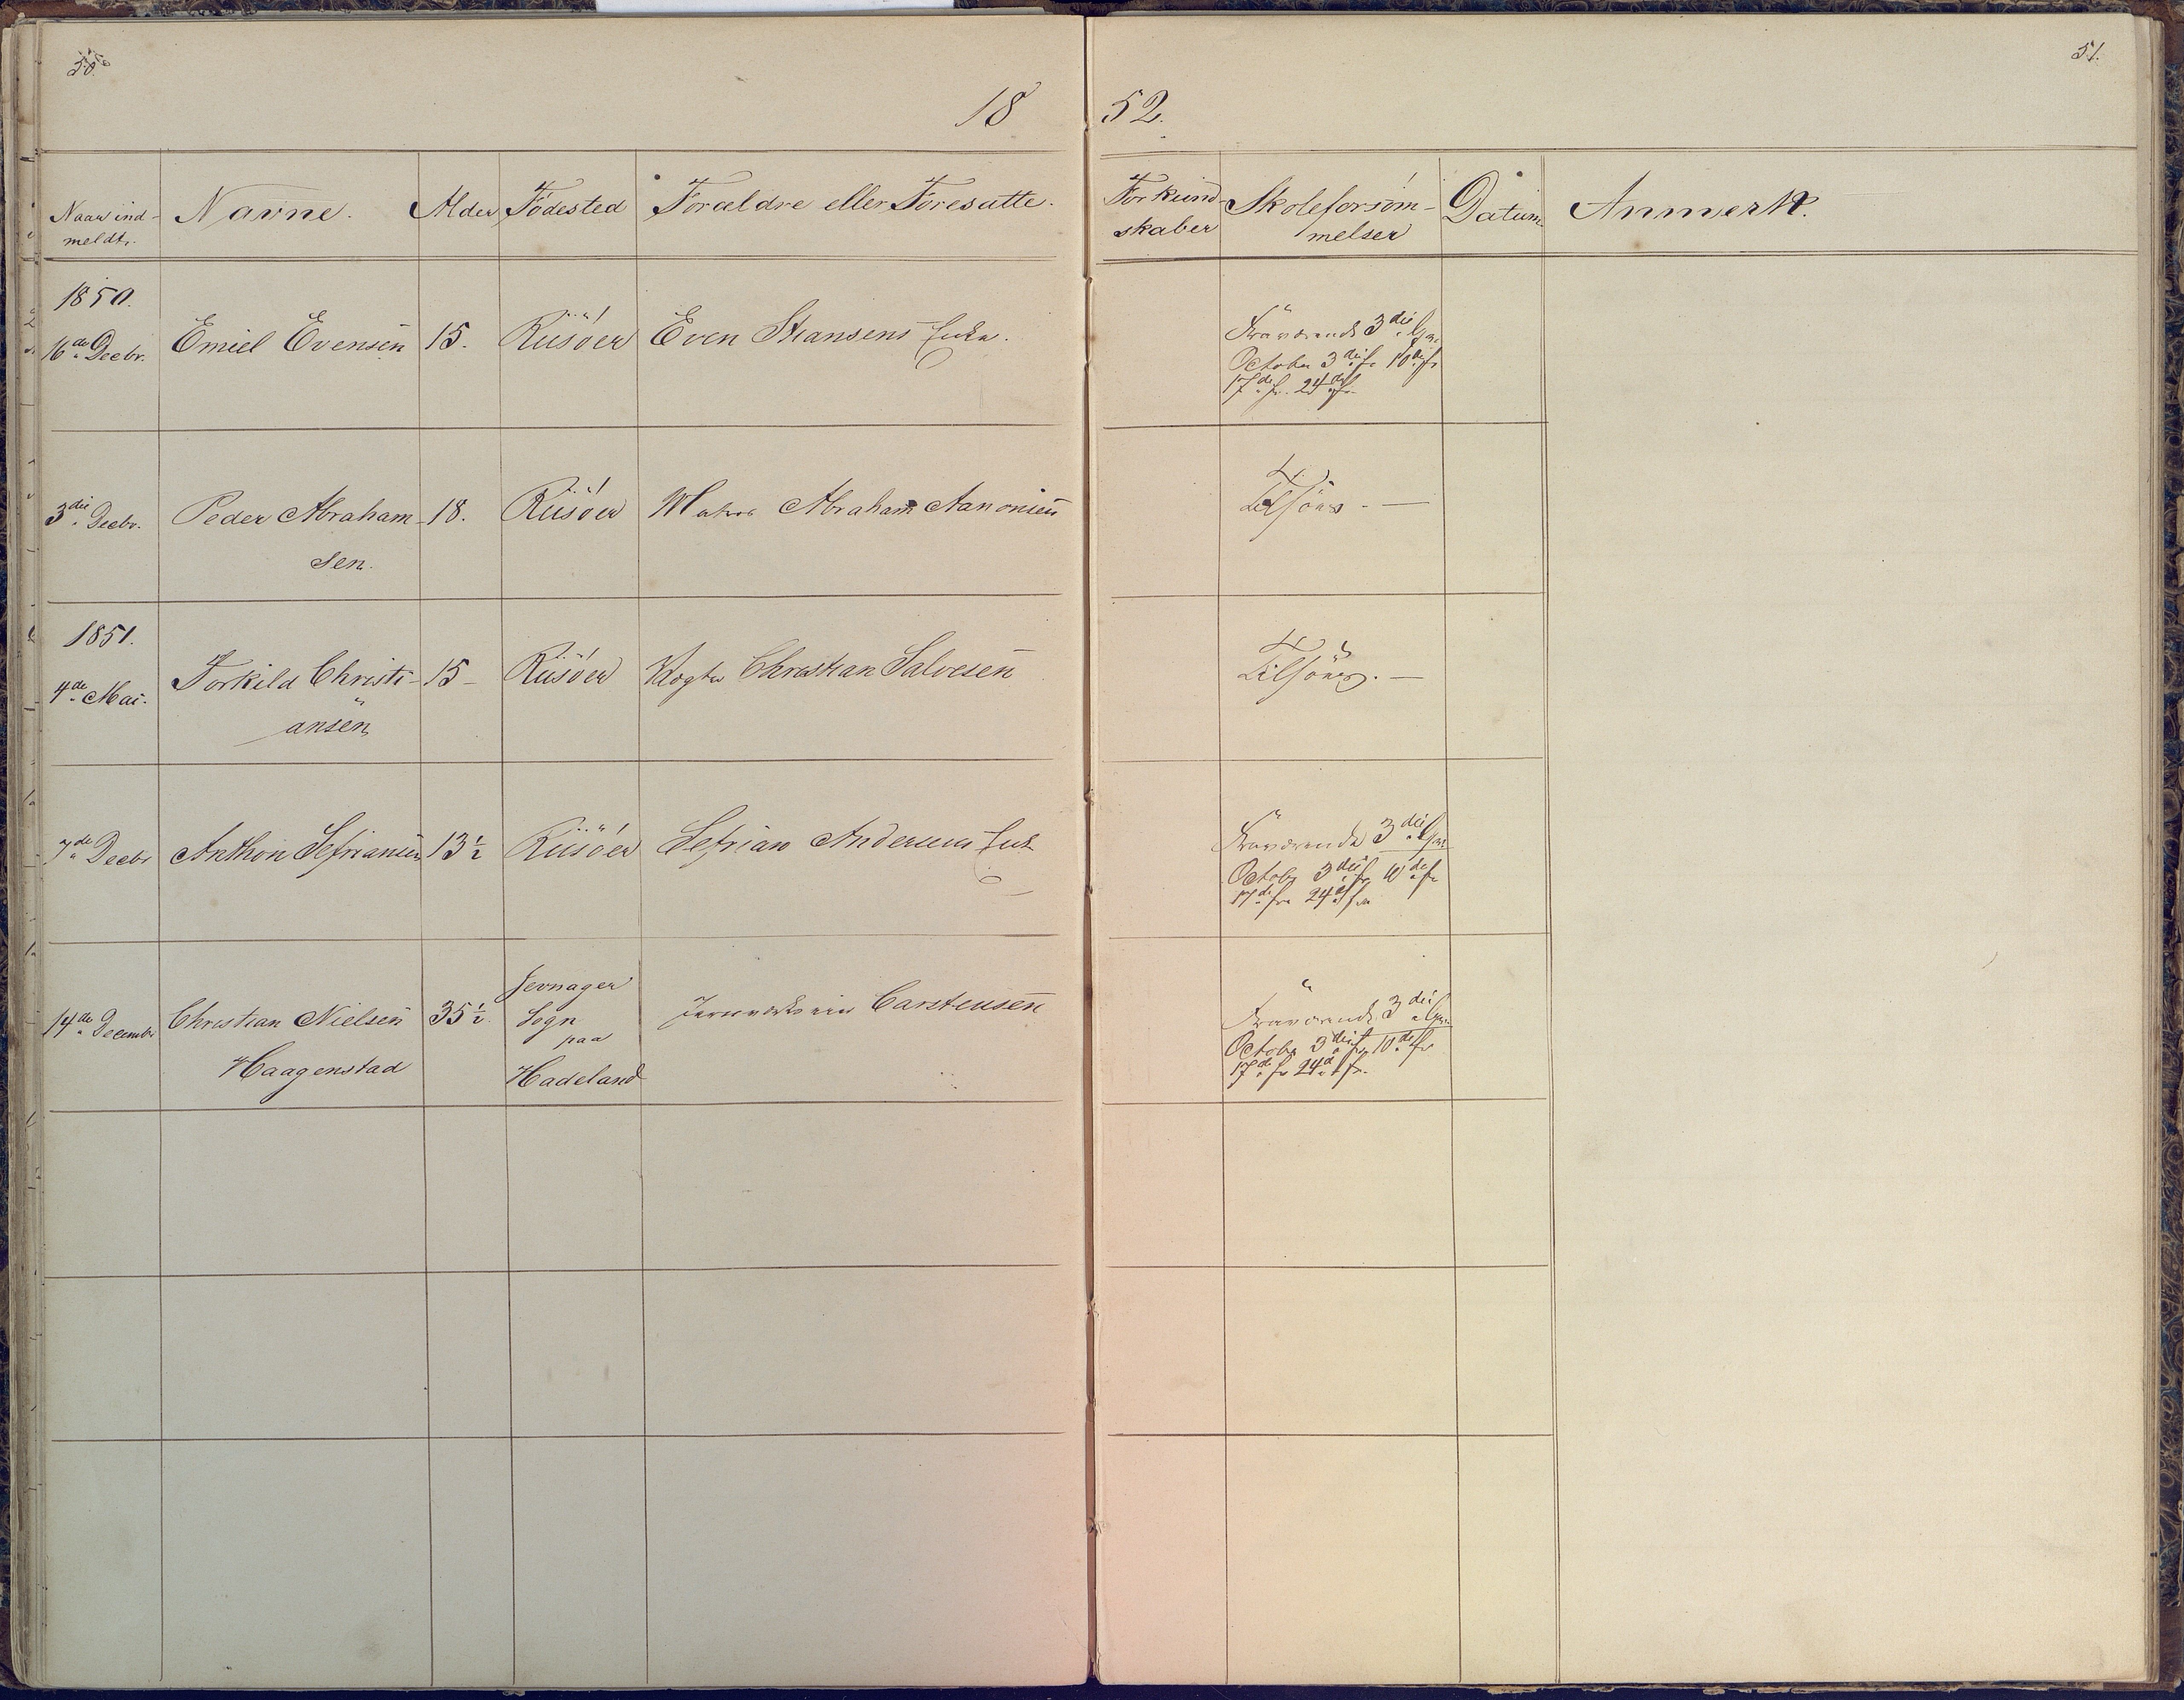 50.
51.
18 52.
Naar ind- Navne. Alder Födested Forældre eller Foresatte. Forkund- Skoleforsöm- Datum Anmerk.
meldt. skaber melser
1850.
16de Decbr. Emiel Evensen 15. Riisöer Even Hansens Enke. Fraværende 3die
October 3die fr. 10de fr.
17de fr. 24de fr.
3die Decbr. Peder Abraham- 18. Riisöer Matros Abraham Aanonsen Tilsöes. —
sen.
1851.
4de Mai. Torkild Christi- 15 - Riisöer Christian Salvesen Tilsöes. —
ansen
7de Decbr Anthon Sefriansen 13½ Riisöer Sefrian Andersens Enke Fraværende 3die
October 3die fr 10de fr
17de fr 24de fr
14de December Christian Nielsen 35½ Jevnager Carstensen Fraværende 3die
Haagenstad Sogn October 3die fr. 10de fr
paa 17de fr 24de fr.
Hadeland